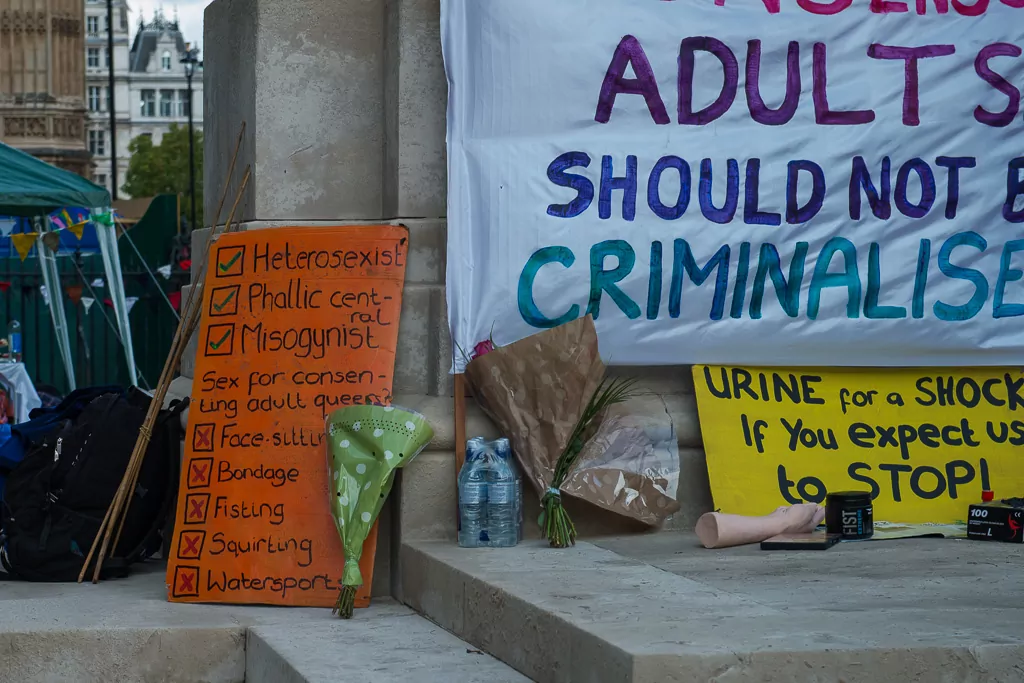 Heterosexist
Phallic cent-
ral
Misogynist
Sex for consen-
ting adult queers
Face-sitting
Bondage
Fisting
Squirting
Watersports
ADULTS
SHOULD NOT B
CRIMINALISE
URINE for a SHOCK
If You expect us
to STOP!
FIST
100
L